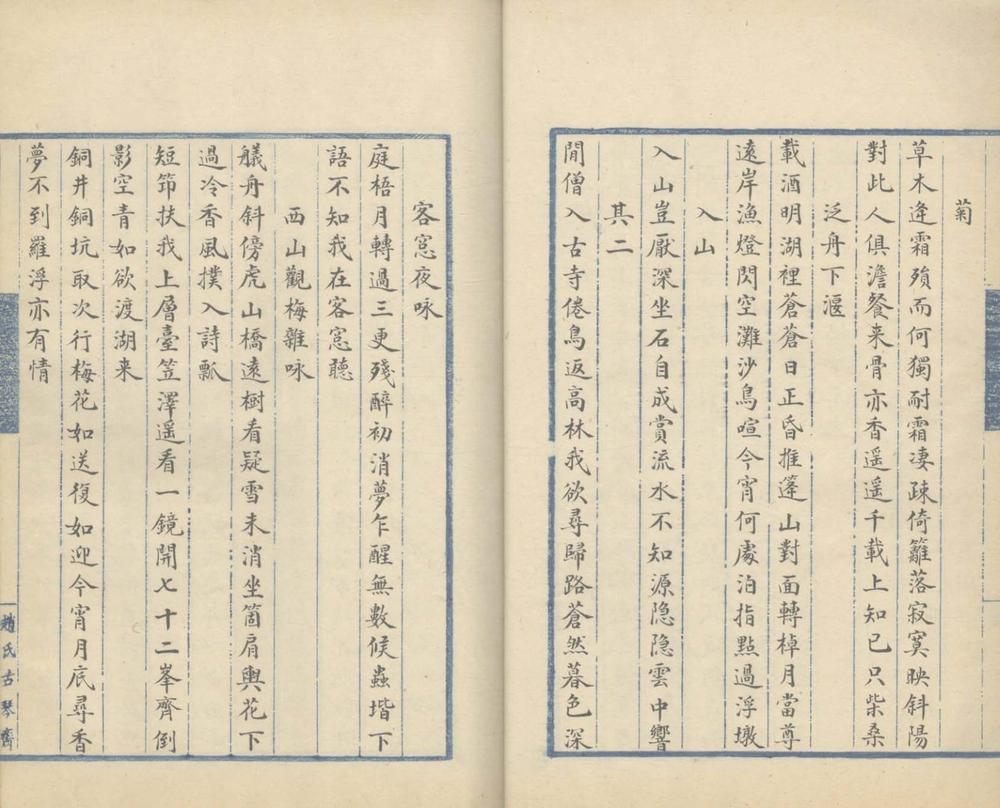 菊
草木逢霜殞而何獨耐霜凄疎倚籬落寂寞映斜陽
對此人俱澹餐来骨亦香遥遥千載上知已只柴桑
泛舟下湿
載酒明湖裡蒼蒼日正昏推篷山對面轉棹月當尊
遠岸漁燈閃空灘沙鳥喧今宵何處泊指點過浮墩
入山
入山豈厭深坐石自成賞流水不知源隐隐雲中響
其二
閒僧入古寺倦鳥返高林我欲尋歸路蒼然暮色深
客窓夜咏
庭梧月轉過三更殘醉初消夢乍醒無數候蟲堦下
語不知我在客窓聽
西山觀梅雜咏
艤舟斜傍虎山橋遠樹看疑雪未消坐箇肩輿花下
過冷香風撲入詩瓢
短笻扶我上層臺笠澤遥看一鏡開七十二峯齊倒
影空青如欲渡湖来
銅井銅坑取次行梅花如送復如迎今宵月底尋香
夢不到羅浮亦有情
趙氏古琴齋